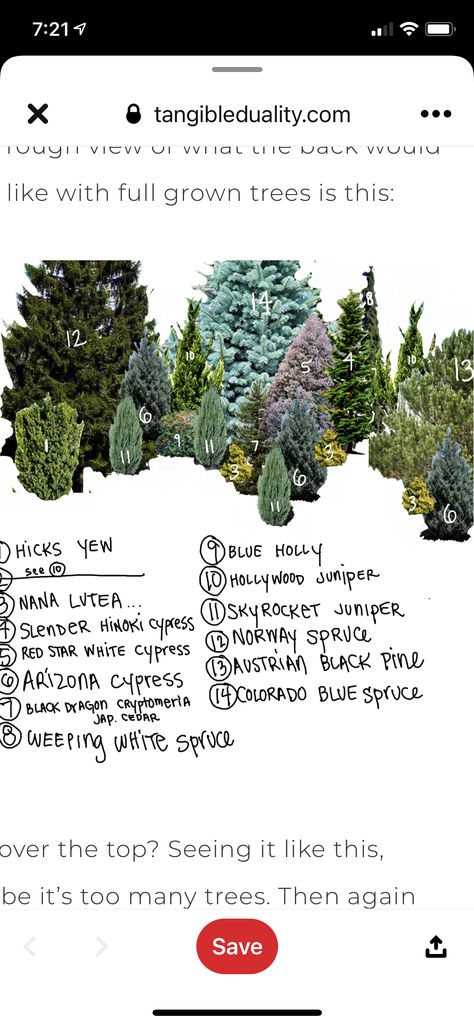 7:21
tangibleduality.com
rough view of what the back would
like with full grown trees is this:
14
8
12
10
5
4
10
13
7
6
1
9
11
11
7
3
3
6
11
3
6
1 HICKS YEW
see 10
3 NANA LUTEA...
4 SLENDER HINOKI CYPRESS
5 RED STAR WHITE CYPRESS
6 ARIZONA CYPRESS
7 BLACK DRAGON CRYPTOMERIA
JAP. CEDAR
8 WEEPING WHITE SPRUCE
9 BLUE HOLLY
10 HOLLYWOOD JUNIPER
11 SKYROCKET JUNIPER
12 NORWAY SPRUCE
13 AUSTRIAN BLACK PINE
14 COLORADO BLUE SPRUCE
over the top? Seeing it like this,
be it's too many trees. Then again
Save